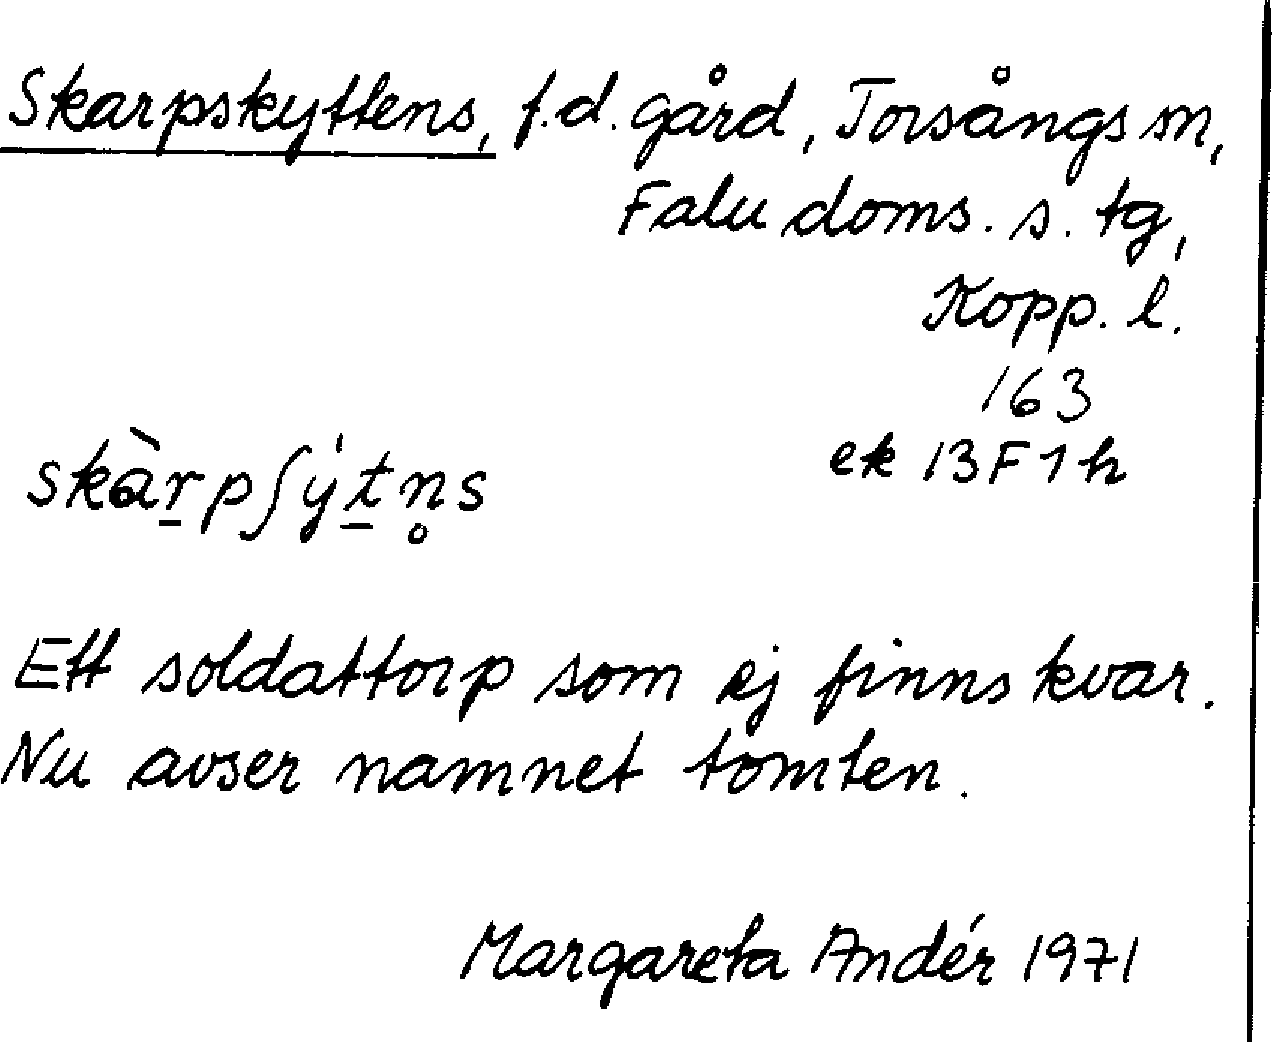 Skarpskyttens, f.d. gård, Torsångs sn,
Falu doms. s. tg,
Kopp. l.
163
ek 13F1h
skàr̠pʃýt̠n̥s
Ett soldattorp som ej finns kvar.
Nu avser namnet tomten.
Margareta Andér 1971